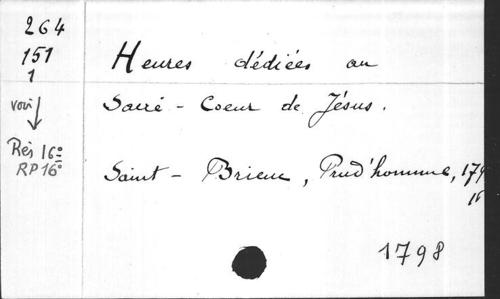 264
151
1
voir
Rés 16º
RP 16º
Heures dédiées au
Sacré-Coeur de Jésus.
Saint-Brieuc, Prud'homme, 179
16
1798